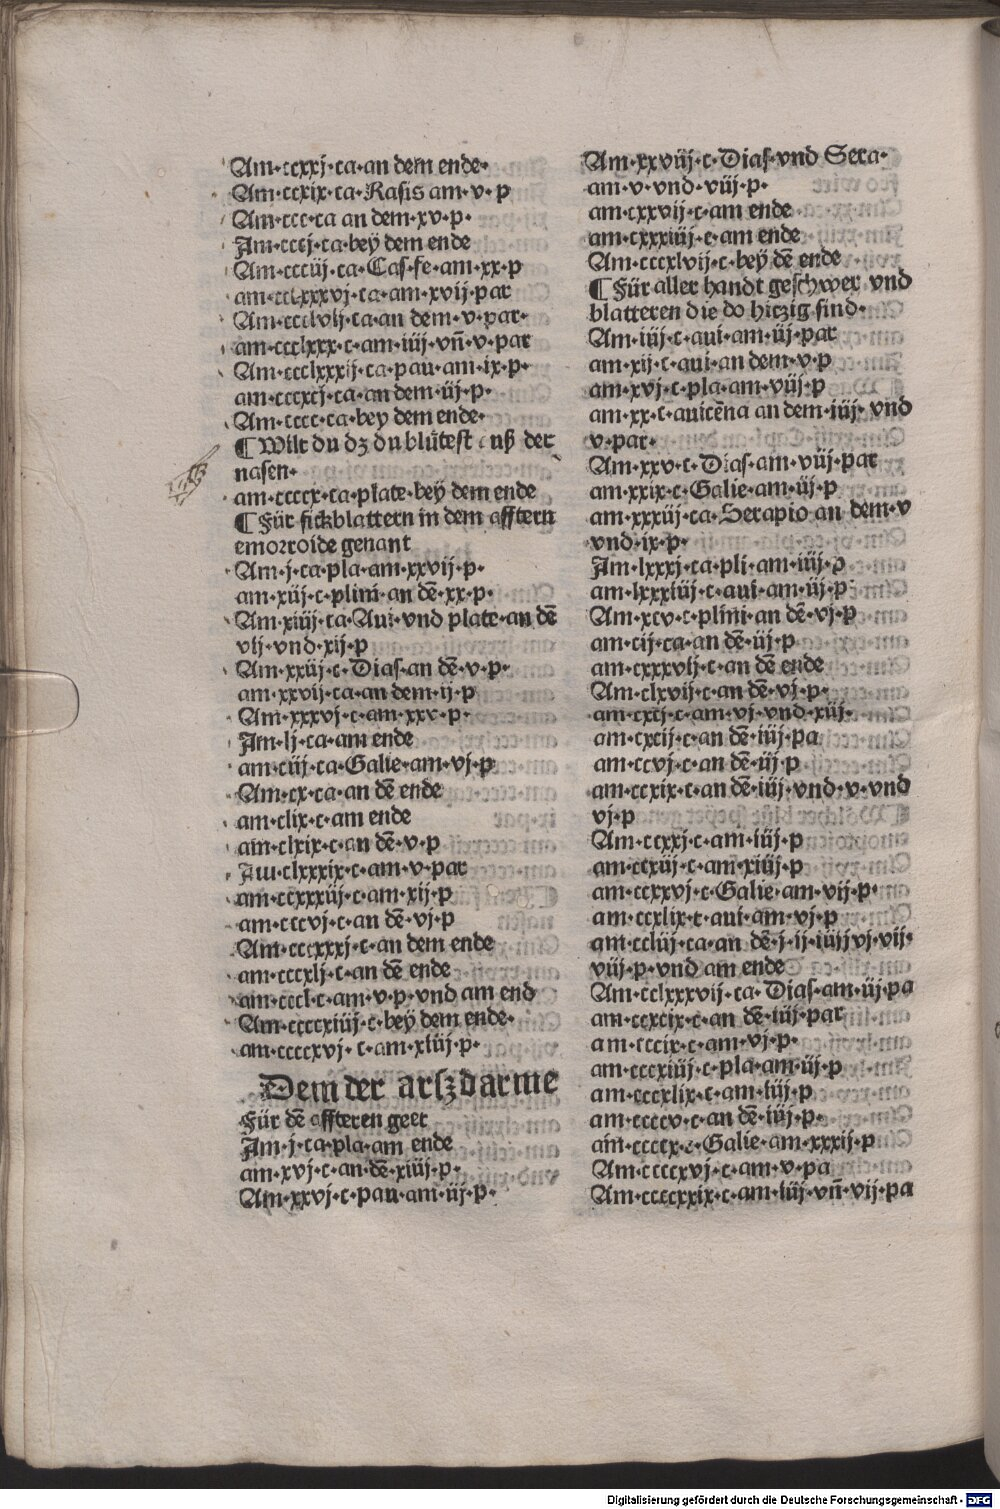 Am·ccxxj·ca·an dem ende·
Am·ccxix·ca·Rasis am·v·p
Am·ccc·ca an dem·xv·p·
Am·cccj·ca·beÿ dem ende
Am·ccciij·ca·Cas·fe·am·xx·p
am·ccclxxxvj·ca·am·xvij·par
Am·ccclvij·ca·an dem·v·par·
am·ccclxxx·c·am·iiij·vn̄·v·par
Am·ccclxxxij·ca·pau·am·ix·p·
am·cccxcj·ca·an dem·iij·p·
Am·cccc·ca·bey dem ende·
¶ Wilt du dz du blůtest uß der
nasen·
am·ccccx·ca·plate·beÿ dem ende
¶ Für fickblattern in dem afftern
emorroide genant
Am·j·ca·pla·am·xxvij·p·
am·xiij·c·plini·an dē·xx·p·
Am·xiiij·ca·Aui·vnd plate·an dē
vij·vnd·xij·p
Am·xxiij·c·Dias·an dē·v·p·
am·xxvij·ca·an dem·ij·p
Am·xxxvj·c·am·xxv·p·
Am·lj·ca·am ende
am·ciij·ca·Galie·am·vj·p
Am·cx·ca·an dē ende
am·clix·c·am ende
am·clxix·c·an dē·v·p
Am·clxxxix·c·am·v·par
am·ccxxxiij·c·am·xij·p
am·cccvj·c·an dē·vj·p
Am·cccxxxj·c·an dem ende
am·cccxlj·c·an dē ende
am·cccl·c·am·v·p·vnd am end
Am·ccccxiiij·c·beÿ dem ende·
am·ccccxvj·c·am·xliij·p·
Dem der arszdarme
Für dē affteren geet
Am·j·ca·pla·am ende
am·xvj·c·an·dē·xiiij·p·
Am·xxvj·c·pau·am·iij·p·
Am·xxviij·c·Dias·vnd Sera·
am·v·vnd·viij·p·
am·cxxvij·c·am ende
am·cxxxiiij·c·am ende
Am·cccxlvij·c·beÿ dē ende
¶ Für aller handt geschwer vnd
blatteren die do hiczig sind·
Am·iiij·c·aui·am·iij·par
am·xij·c·aui·an dem·v·p
am·xvj·c·pla·am·viij·p
am·xx·c·auicēna an dem·iiij·vnd
v·par·
Am·xxv·c·Dias·am·viij·par
am·xxix·c·Galie·am·iij·p
am·xxxiij·ca·Serapio an dem·v
vnd·ix·p·
Am·lxxxj·ca·pli·am·iiij·p
am·lxxxiiij·c·aui·am·iij·p
Am·xcv·c·plini·an dē·vj·p
am·cij·ca·an dē·iij·p
am·cxxxvij·c·an dē ende
Am·clxvij·c·an dē·vj·p·
am·cxcj·c·am·vj·vnd·xiij·
am·cxcij·c·an dē·iiij·pa
am·ccvj·c·an dē·iij·p
am·ccxix·c·an dē·iiij·vnd·v·vnd
vj·p
Am·ccxxj·c·am·iiij·p
am·ccxiij·c·am·xiiij·p
am·ccxxvj·c·Galie·am·vij·p·
am·ccxlix·c·aui·am·vj·p
am·ccliij·ca·an dē·j·ij·iiij vj·vij·
viij·p·vnd am ende
Am·cclxxxvij·ca·Dias·am·iij·pa
am·ccxcix·c·an dē·iiij·par
am·cccix·c·am·vj·p·
am·cccxiiij·c·pla·am·iij·p
am·cccxlix·c·am·iiij·p
am·ccccv·c·an dē·iiij·p·
am·ccccx·c·Galie·am·xxxij·p
Am·ccccxvj·c·am·v·pa
Am·ccccxxix·c·am·iiij·vn̄·vij·pa
Digitalisierung gefördert durch die Deutsche Forschungsgemeinschaft - DFG